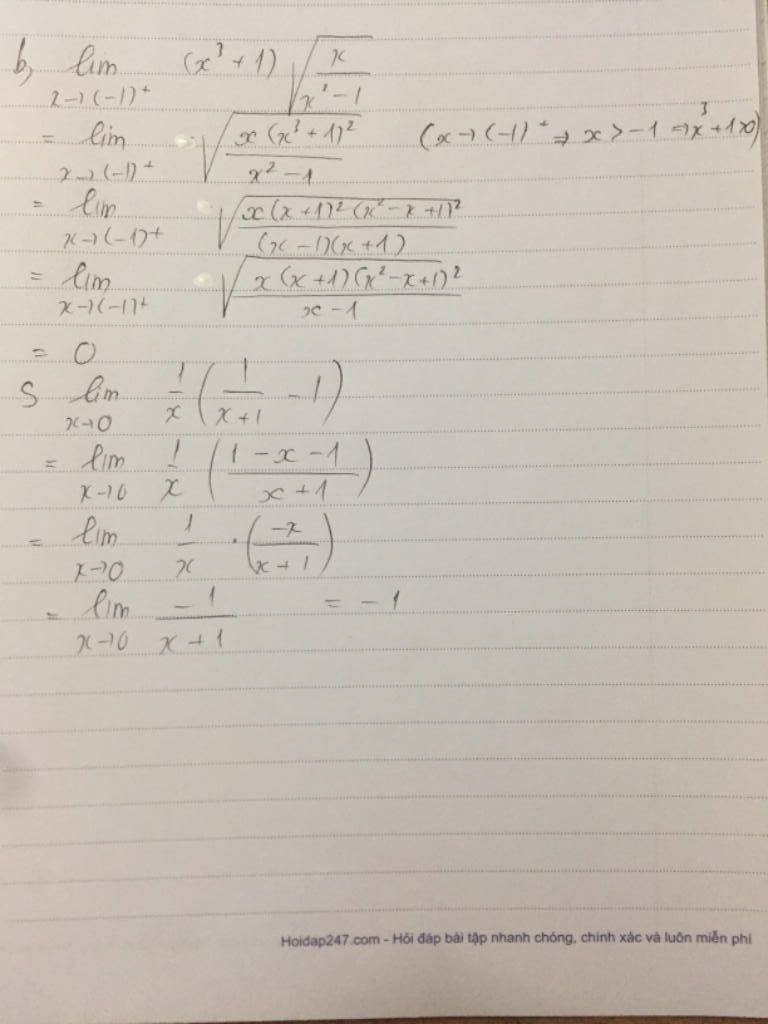 b, lim x→(-1)⁺ (x³ + 1) √(x/(x² - 1))
= lim x→(-1)⁺ √(x(x³ + 1)²/(x² - 1)) (x→(-1)⁺ ⇒ x > -1 ⇒ x³ + 1 > 0)
= lim x→(-1)⁺ √(x(x + 1)²(x² - x + 1)²/((x - 1)(x + 1)))
= lim x→(-1)⁺ √(x(x + 1)(x² - x + 1)²/(x - 1))
= 0
S lim x→0 1/x (1/(x + 1) - 1)
= lim x→0 1/x ((1 - x - 1)/(x + 1))
= lim x→0 1/x · (-x/(x + 1))
= lim x→0 -1/(x + 1) = -1
Hoidap247.com - Hỏi đáp bài tập nhanh chóng, chính xác và luôn miễn phí